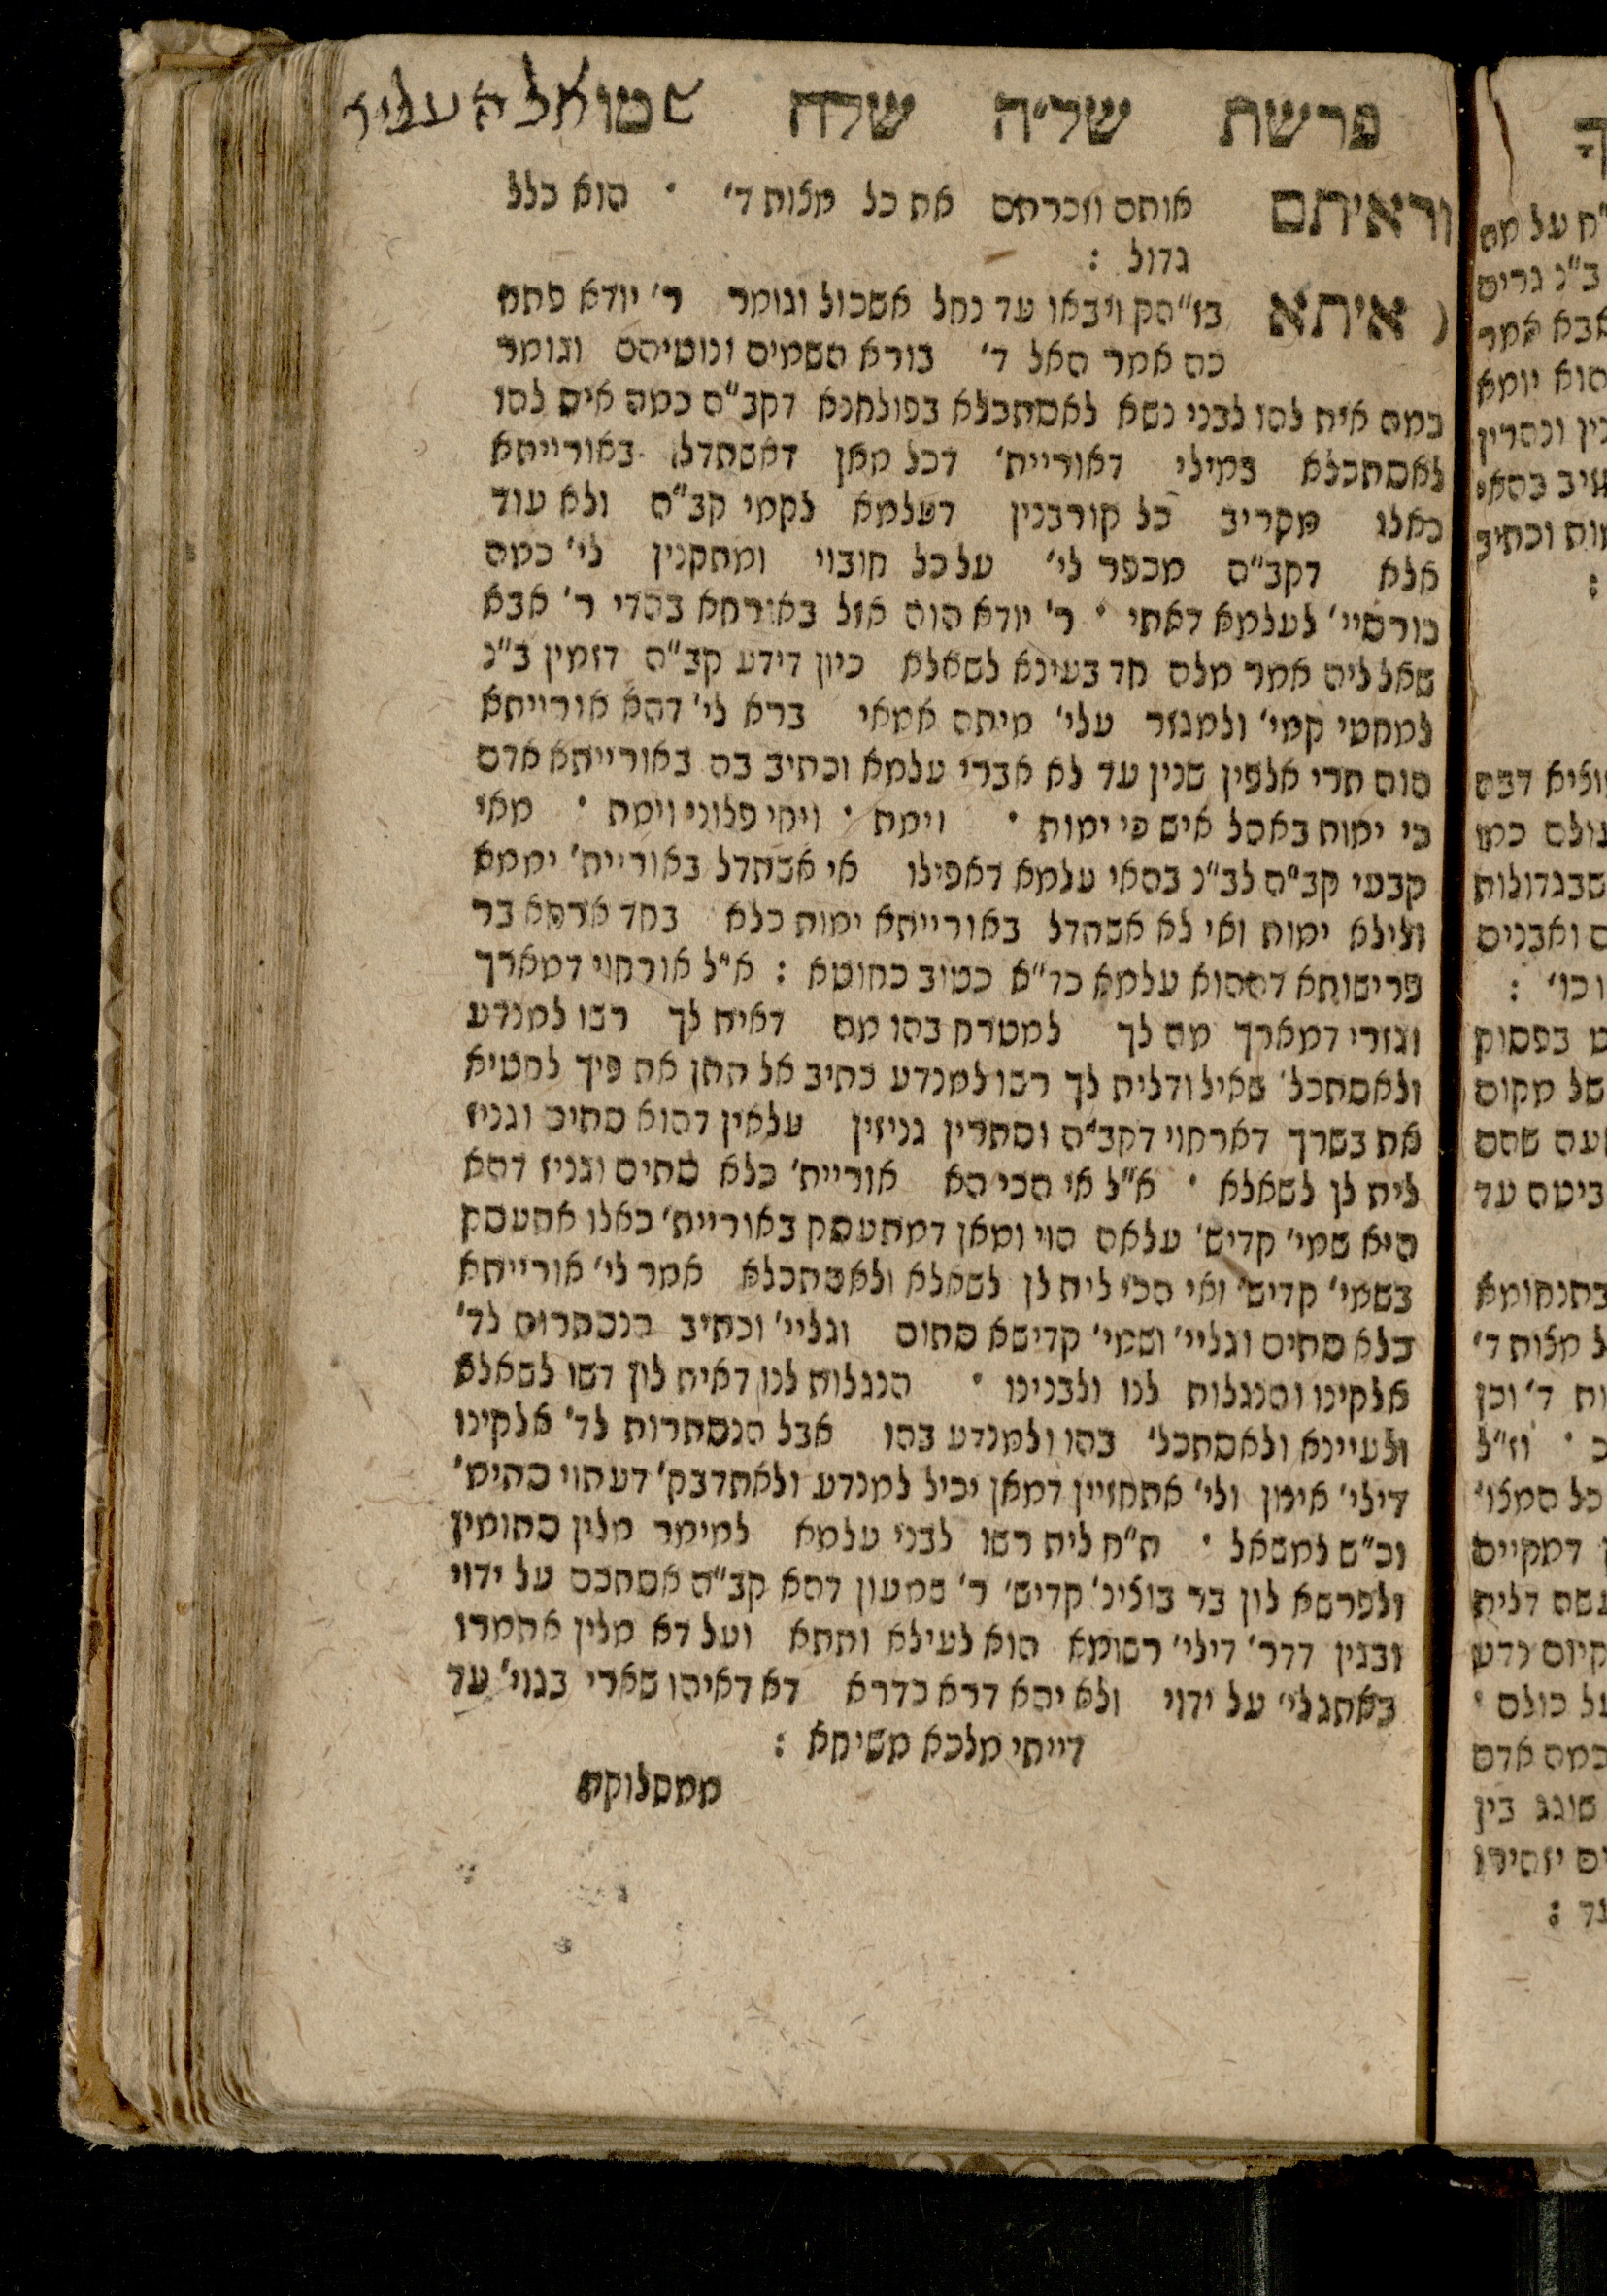 פרשת של״ה שלח שמואל העליר
וראיתם אותם וזכרתם את כל מצות ד׳ · הוא כלל
גדול :
( איתא בז״הק ויבאו עד נחל אשכול וגומר ר׳ יודא פתח
כה אמר האל ד׳ בורא השמים ונוטיהם וגומר
כמה אית להו לבני נשא לאסתכלא בפולחנא דקב״ה כמה אית להו
לאסתכלא במילי דאוריית׳ דכל מאן דאשתדל באורייתא
כאלו מקריב כל קורבנין דעלמא לקמי קב״ה ולא עוד
אלא דקב״ה מכפר לי׳ על כל חובוי ומתקנין לי׳ כמה
כורסיי׳ לעלמא דאתי · ר׳ יודא הוה אזל באורחא בהדי ר׳ אבא
שאל ליה אמר מלה חד בעינא לשאלא כיון דידע קב״ה דזמין ב״נ
למחטי קמי׳ ולמגזר עלי׳ מיתה אמאי ברא לי׳ דהא אורייתא
הוה תרי אלפין שנין עד לא אברי עלמא וכתיב בה באורייתא אדם
כי ימות באהל איש כי ימות · וימת · ויחי פלוני וימת · מאי
קבעי קב״ה לב״נ בהאי עלמא דאפילו אי אשתדל באוריית׳ יממא
ולילא ימות ואי לא אשתדל באורייתא ימות כלא בחד ארחא בר
פרישותא דההוא עלמא כד״א כטוב כחוטא : א״ל אורחוי דמארך
וגזרי דמארך מה לך למטרח בהו מה דאית לך רשו למנדע
ולאסתכל׳ שאיל ודלית לך רשו למנדע כתיב אל תתן את פיך לחטיא
את בשרך דארחוי דקב״ה וסתרין גניזין עלאין דהוא סתים וגניז
לית לן לשאלא · א״ל אי הכי הא אוריית׳ כלא סתים וגניז דהא
היא שמי׳ קדיש׳ עלאה הוי ומאן דמתעסק באוריית׳ כאלו אתעסק
בשמי׳ קדיש׳ ואי הכי לית לן לשאלא ולאסתכלא אמר לי׳ אורייתא
כלא סתים וגליי׳ ושמי׳ קדישא סתום וגליי׳ וכתיב הנסתרות לד׳
אלקינו והנגלות לנו ולבנינו · הנגלות לנו דאית לון רשו לשאלא
ולעיינא ולאסתכל׳ בהו ולמנדע בהו אבל הנסתרות לד׳ אלקינו
דילי׳ אינון ולי׳ אתחזיין דמאן יכיל למנדע ולאתדבק׳ דעתוי סתימ׳
וכ״ש למשאל · ת״ח לית רשו לבני עלמא למימר מלין סתומין
ולפרשא לון בר בוצינ׳ קדיש׳ ר׳ שמעון דהא קב״ה אסתכם על ידוי
ובגין דדר׳ דילי׳ רשומא הוא לעילא ותתא ועל דא מלין אתמרו
באתגלי׳ על ידוי ולא יהא דרא כדרא דא דאיהו שארי בגוי׳ עד
דייתי מלכא משיחא :
ממחלוקת
ח על מה
ב״נ גרים
אבא אמר
הוא יומא
בהאי
וכתיב
:
דבה
כמו
שבגדולות
ואבנים
וכו׳ :
בפסוק
של מקום
שהם
עד
בתנחומא
ל מצות ד׳
ד׳ וכן
· וז״ל
כל
דמקיים
דלית
על כולם ·
כמה אדם
שוגג בין
: